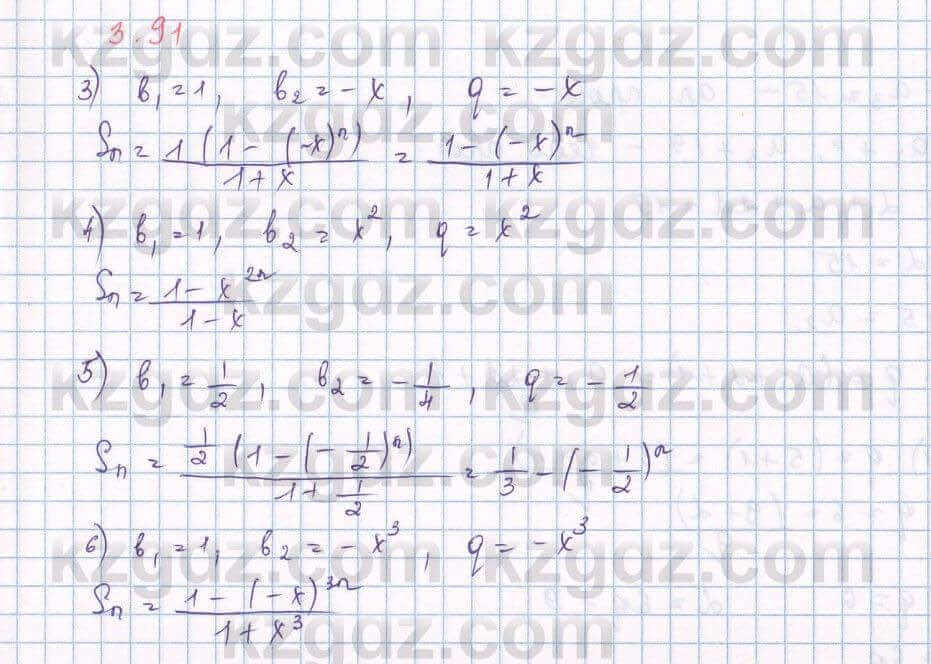 3.91
3) b₁ = 1, b₂ = -x, q = -x
Sₙ = 1(1 - (-x)ⁿ) / 1+x = 1 - (-x)ⁿ / 1+x
4) b₁ = 1, b₂ = x², q = x²
Sₙ = 1 - x²ⁿ / 1 - x
5) b₁ = 1/2, b₂ = -1/4, q = -1/2
Sₙ = 1/2 (1 - (-1/2)ⁿ) / 1 + 1/2 = 1/3 - (-1/2)ⁿ
6) b₁ = 1, b₂ = -x³, q = -x³
Sₙ = 1 - (-x)³ⁿ / 1 + x³
kzgdz.com
kzgdz.com
kzgdz.com
kzgdz.com
kzgdz.com
kzgdz.com
kzgdz.com
kzgdz.com